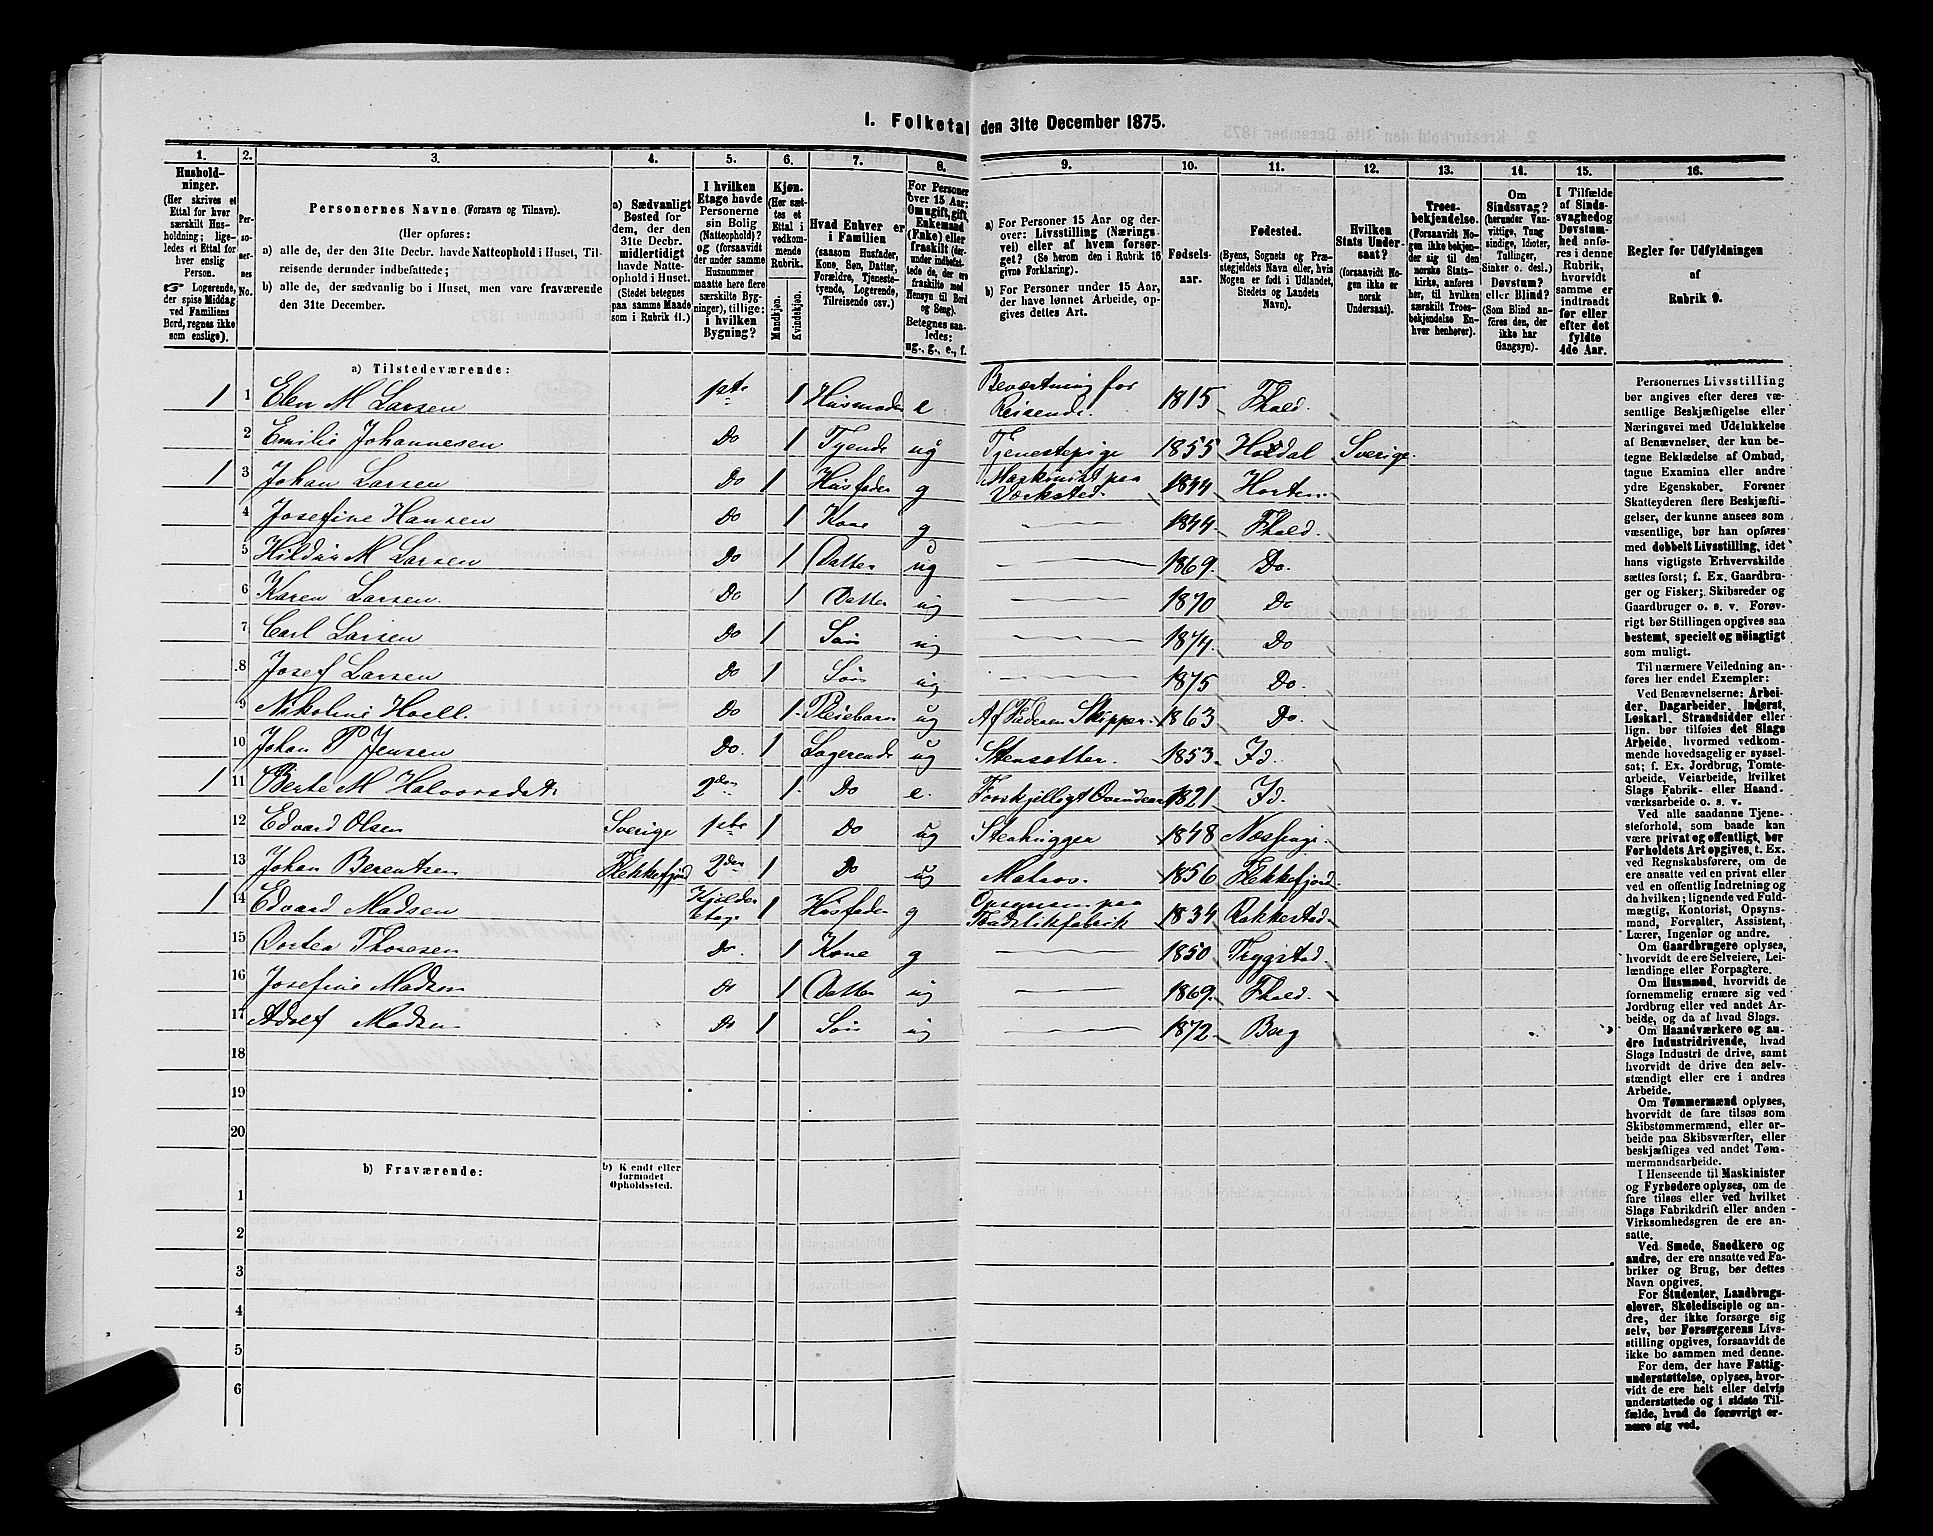 1. Folketal den 31te December 1875.
1. 2. 3. 4. 5. 6. 7. 8. 9. 10. 11. 12. 13. 14. 15. 16.
Hushold-
ninger.
(Her skrives et
Ettal for hver
særskilt Hus-
holdning; lige-
ledes et Ettal for
hver enslig
Person.
☞ Logerende,
der spise Middag
ved Familiens
Bord, regnes ikke
som enslige).
Per-
so-
ner-
nes
No.
Personernes Navne (Fornavn og Tilnavn).
(Her opføres:
a) alle de, der den 31te Decbr. havde Natteophold i Huset, Til-
reisende derunder indbefattede;
b) alle de, der sædvanlig bo i Huset, men vare fraværende
den 31te December.
a) Sædvanligt
Bosted for
dem, der den
31te Decbr.
midlertidigt
havde Natte-
ophold i Huset.
(Stedet betegnes
paa samme Maade
som i Rubrik 11.)
I hvilken
Etage havde
Personerne
sin Bolig
(Natteophold)?
og (forsaavidt
der under samme
Husnummer
maatte høre flere
særskilte Byg-
ninger), tillige:
i hvilken
Bygning?
Kjøn.
(Her sæt-
tes et
Ettal i
vedkom-
mende
Rubrik.
Mandkjøn.
Kvindekjøn.
Hvad Enhver er
i Familien
(saasom Husfader,
Kone, Søn, Datter,
Forældre, Tjeneste-
tyende, Logerende,
Tilreisende osv.)
For Personer
over 15 Aar:
Om ugift, gift,
Enkemand
(Enke) eller
fraskilt (der-
under indbefat-
tede de, der ere
fraskilte med
Hensyn til Bord
og Seng).
Betegnes saa-
ledes:
ug., g., e., f.
a) For Personer 15 Aar og der-
over: Livsstilling (Nærings-
vei) eller af hvem forsør-
get? (Se herom den i Rubrik 16
givne Forklaring).
b) For Personer under 15 Aar,
der have lønnet Arbeide, op-
gives dettes Art.
Fødsels-
aar.
Fødested.
(Byens, Sognets og Præ-
stegjeldets Navn eller, hvis
Nogen er født i Udlandet,
Stedets og Landets
Navn).
Hvilken
Stats Under-
saat?
(forsaavidt No-
gen ikke er
norsk
Undersaat).
Troes-
bekjendelse.
(Forsaavidt No-
gen ikke bekjen-
der sig til den
norske Stats-
kirke, anføres
her, til hvilken
særskilt Troes-
bekjendelse En-
hver henhører).
Om
Sindssvag?
(herunder Van-
vittige, Tung-
sindige, Idioter,
Tullinger,
Sinker o. desl.)
Døvstum?
eller Blind?
(Som Blind an-
føres den, der
ikke har
Gangsyn).
I Tilfælde
af Sinds-
svaghed og
Døvstum-
hed anfø-
res i denne
Rubrik,
hvorvidt
samme er
indtraadt
før eller
efter det
fyldte
4de Aar.
Regler for Udfyldningen
af
Rubrik 9.
a) Tilstedeværende:
1 1 Elen M Larsen 1ste 1 Husmoder e Beværtning for Reisende. 1815 Fhald.
2 Emilie Johannesen Do 1 Tyende ug Tjenestepige 1855 Holdal Sverige.
1 3 Johan Larsen Do 1 Husfader g Maskinist paa Værksted. 1844 Horten.
4 Josefine Hansen Do 1 Kone g 1844 Fhald.
5 M Larsen Do 1 Datter ug 1869. Do.
6 Karen Larsen. Do 1 Datter ug 1870 Do
7 Carl Larsen Do 1 Søn ug 1874. Do
8 Josef Larsen Do 1 Søn ug 1875 Do.
9 Nikoline Hoell. Do 1 Pleiebarn ug Af Faderen Skipper. 1863 Do.
10 Johan P Jensen Do. 1 Logerende ug Stensætter. 1853 Id.
1 11 Berte M Halvorsdatr 2den 1 Do e. Forskjelligt 1821 Id.
12 Edvard Olsen Sverige 1ste 1 Do ug Stenhugger 1848
13 Johan Berentsen Flekkefjord 2den 1 Do ug Matros. 1856 Flekkefjord.
1 14 Edvard Madsen Kjelder etage 1 Husfader g Opsynsm. paa Fyrstikfabrik 1834 Rakkestad.
15 Dortea Thoresen Do. 1 Kone g 1850 Trygstad.
16 Josefine Madsen Do 1 Datter ug 1869. Fhald.
17 Adolf Madsen Do 1 Søn ug 1872 Berg
18
19
20
b) Fraværende: b) Kjendt eller
formodet
Opholdssted.
1
2
3
4
5
6
Personernes Livsstilling
bør angives efter deres væ-
sentlige Beskjæftigelse eller
Næringsvei med Udelukkelse
af Benævnelser, der kun be-
tegne Beklædelse af Ombud,
tagne Examina eller andre
ydre Egenskaber. Forener
Skatteyderen flere Beskjæfti-
gelser, der kunne ansees som
væsentlige, bør han opføres
med dobbelt Livsstilling, idet
hans vigtigste Erhvervskilde
sættes først; f. Ex. Gaardbru-
ger og Fisker; Skibsreder og
Gaardbruger o. s. v. Forøv-
rigt bør Stillingen opgives saa
bestemt, specielt og nöiagtigt
som muligt.
Til nærmere Veiledning an-
føres her endel Exempler:
Ved Benævnelserne: Arbei-
der, Dagarbeider, Inderst,
Løskarl, Strandsidder eller
lign. bør tilføies det Slags
Arbeide, hvormed vedkom-
mende hovedsagelig er syssel-
sat; f. Ex. Jordbrug, Tomte-
arbeide, Veiarbeide, hvilket
Slags Fabrik- eller Haand-
værksarbeide o. s. v.
Ved alle saadanne Tjene-
steforhold, som baade kan
være privat og offentligt, bør
Forholdets Art opgives, t. Ex.
ved Regnskabsførere, om de
ere ansatte ved en privat eller
ved en offentlig Indretning og
da hvilken; lignende ved Fuld-
mægtig, Kontorist, Opsyns-
mand, Forvalter, Assistent,
Lærer, Ingeniør og andre.
Om Gaardbrugere oplyses,
hvorvidt de ere Selveiere, Lei-
lændinge eller Forpagtere.
Om Husmænd, hvorvidt de
fornemmelig ernære sig ved
Jordbrug eller ved andet Ar-
beide, og da af hvad Slags.
Om Haandværkere og an-
dre Industridrivende, hvad
Slags Industri de drive, samt
hvorvidt de drive den selv-
stændigt eller ere i andres
Arbeide.
Om Tømmermænd oplyses,
hvorvidt de fare tilsøs som
Skibstømmermænd, eller ar-
beide paa Skibsværfter, eller
beskjæftiges ved andet Tøm-
mermandsarbeide.
I Henseende til Maskinister
og Fyrbødere oplyses, om de
fare tilsøs eller ved hvilket
Slags Fabrikdrift eller anden
Virksomhedsgren de ere an-
satte.
Ved Smede, Snedkere og
andre, der ere ansatte ved Fa-
briker og Brug, bør dettes
Navn opgives.
For Studenter, Landbrugs-
elever, Skoledisciple og an-
dre, der ikke forsørge sig
selv, bør Forsørgerens Livs-
stilling opgives, forsaavidt de
ikke bo sammen med denne.
For dem, der have Fattig-
understøttelse, oplyses, hvor-
vidt de ere helt eller delvis
understøttede og i sidste Til-
fælde, hvad de forøvrigt er-
nære sig ved.